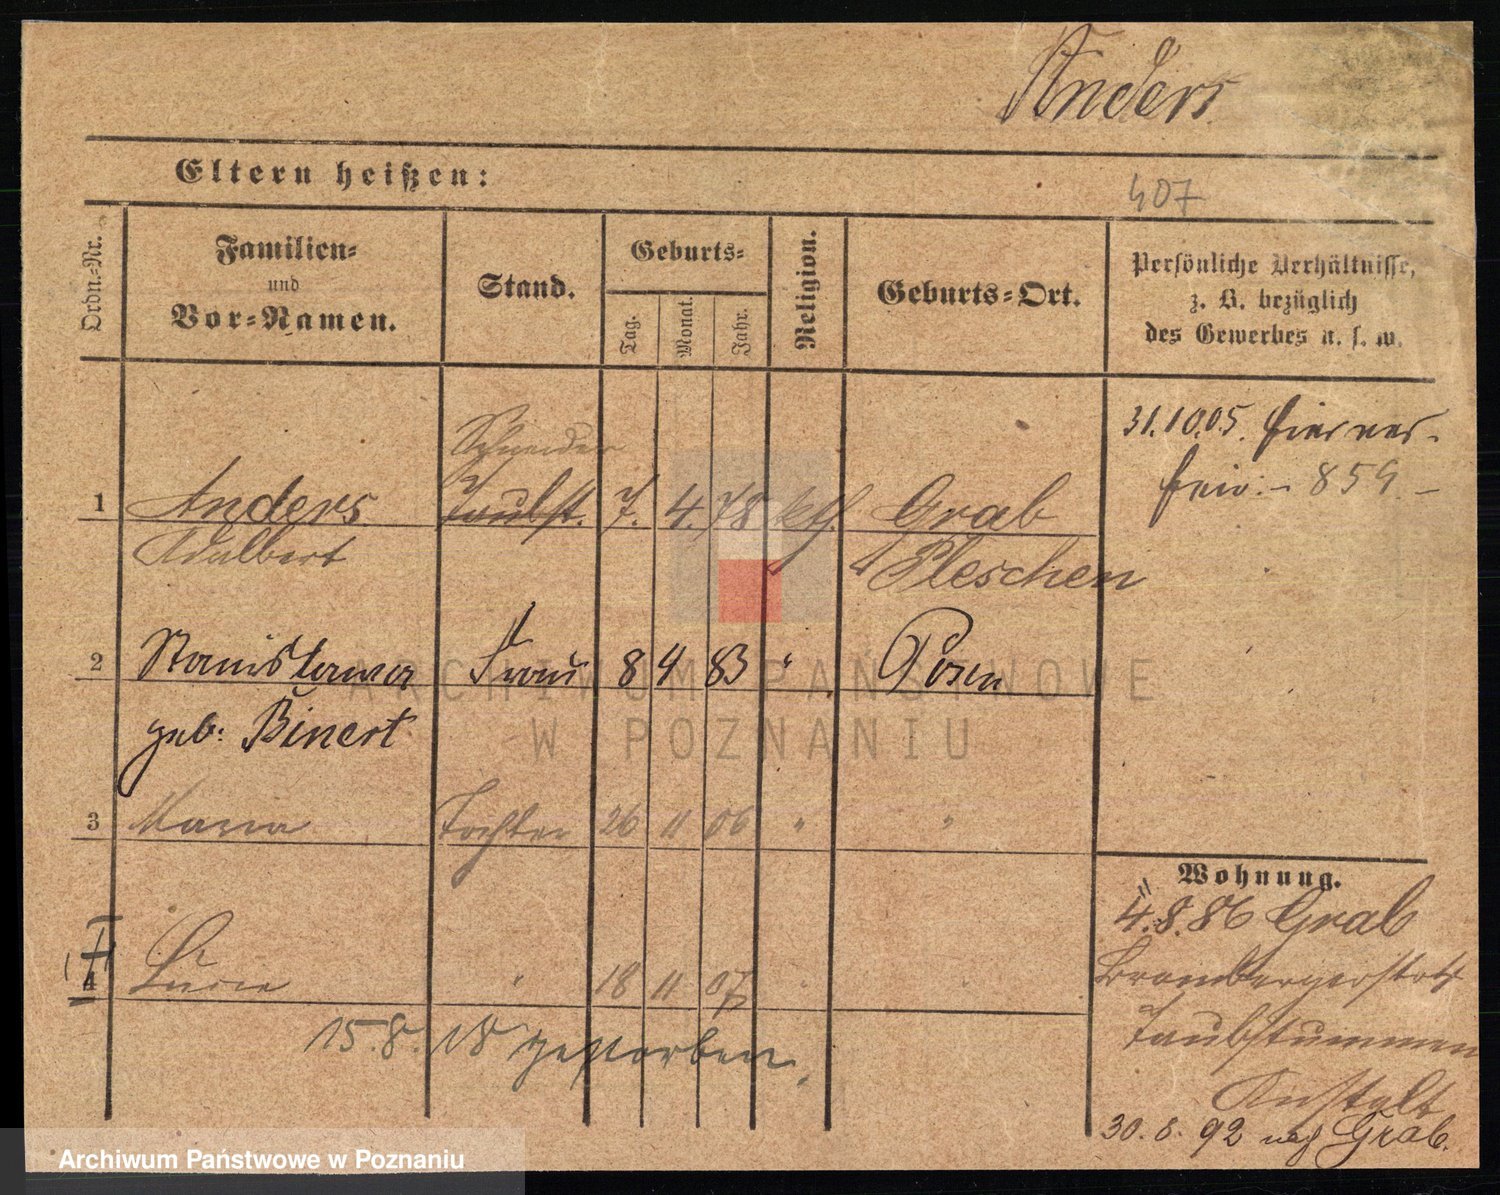 Anders
Eltern heißen:
407
Ordn.-Nr.
Familien-
und
Vor-Namen.
Stand.
Geburts-
Tag.
Monat.
Jahr.
Religion.
Geburts-Ort.
Persönliche Verhältnisse,
z. B. bezüglich
des Gewerbes u. s. w.
31.10.05.
859.-
Schneider
1 Anders Taubst. 7. 4. 78 kth. Grab
Adalbert Pleschen
2 Stanisława Frau 8 4 83 " Posen
geb. Binert
3 Maria Tochter 26 11 06 " "
4 Lucie " 18 11 07 " "
15.8.18 gestorben.
Wohnung.
4.8.86 Grab
Brombergerstr
Taubstummen
Anstalt
30.6.92 nach Grab.
ARCHIWUM PAŃSTWOWE
W POZNANIU
Archiwum Państwowe w Poznaniu